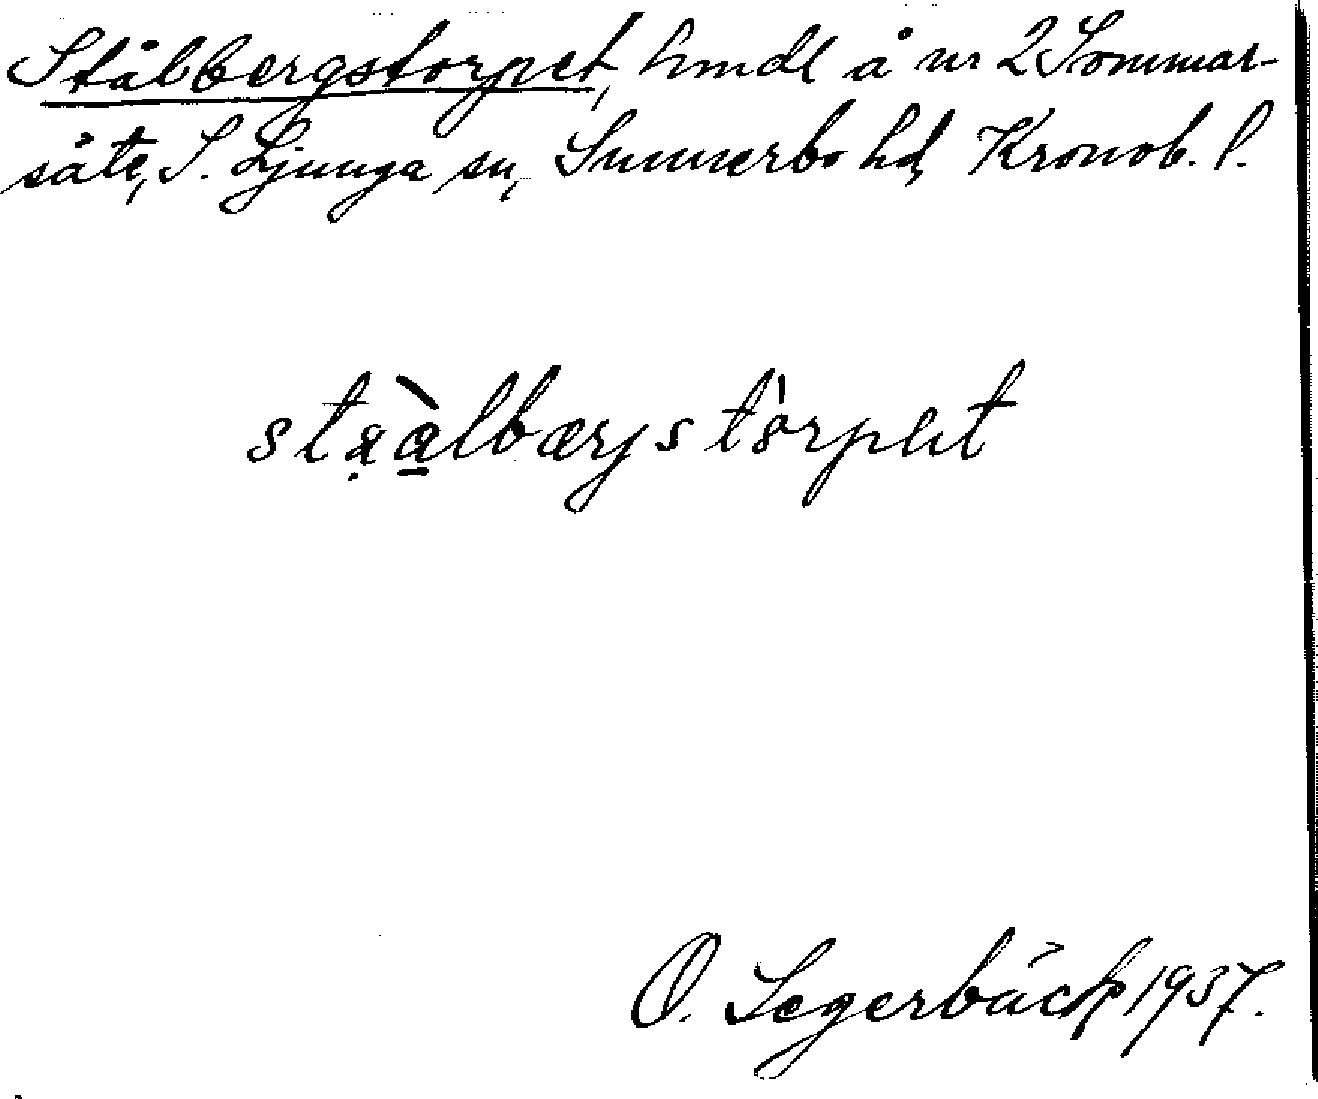 Stålbergstorpet, hmdl å nr 2 Sommar-
säte, S. Ljunga sn, Sunnerbo hd, Kronob. l.
stạàlbærjstòrpet
O. Segerbäck 1937.